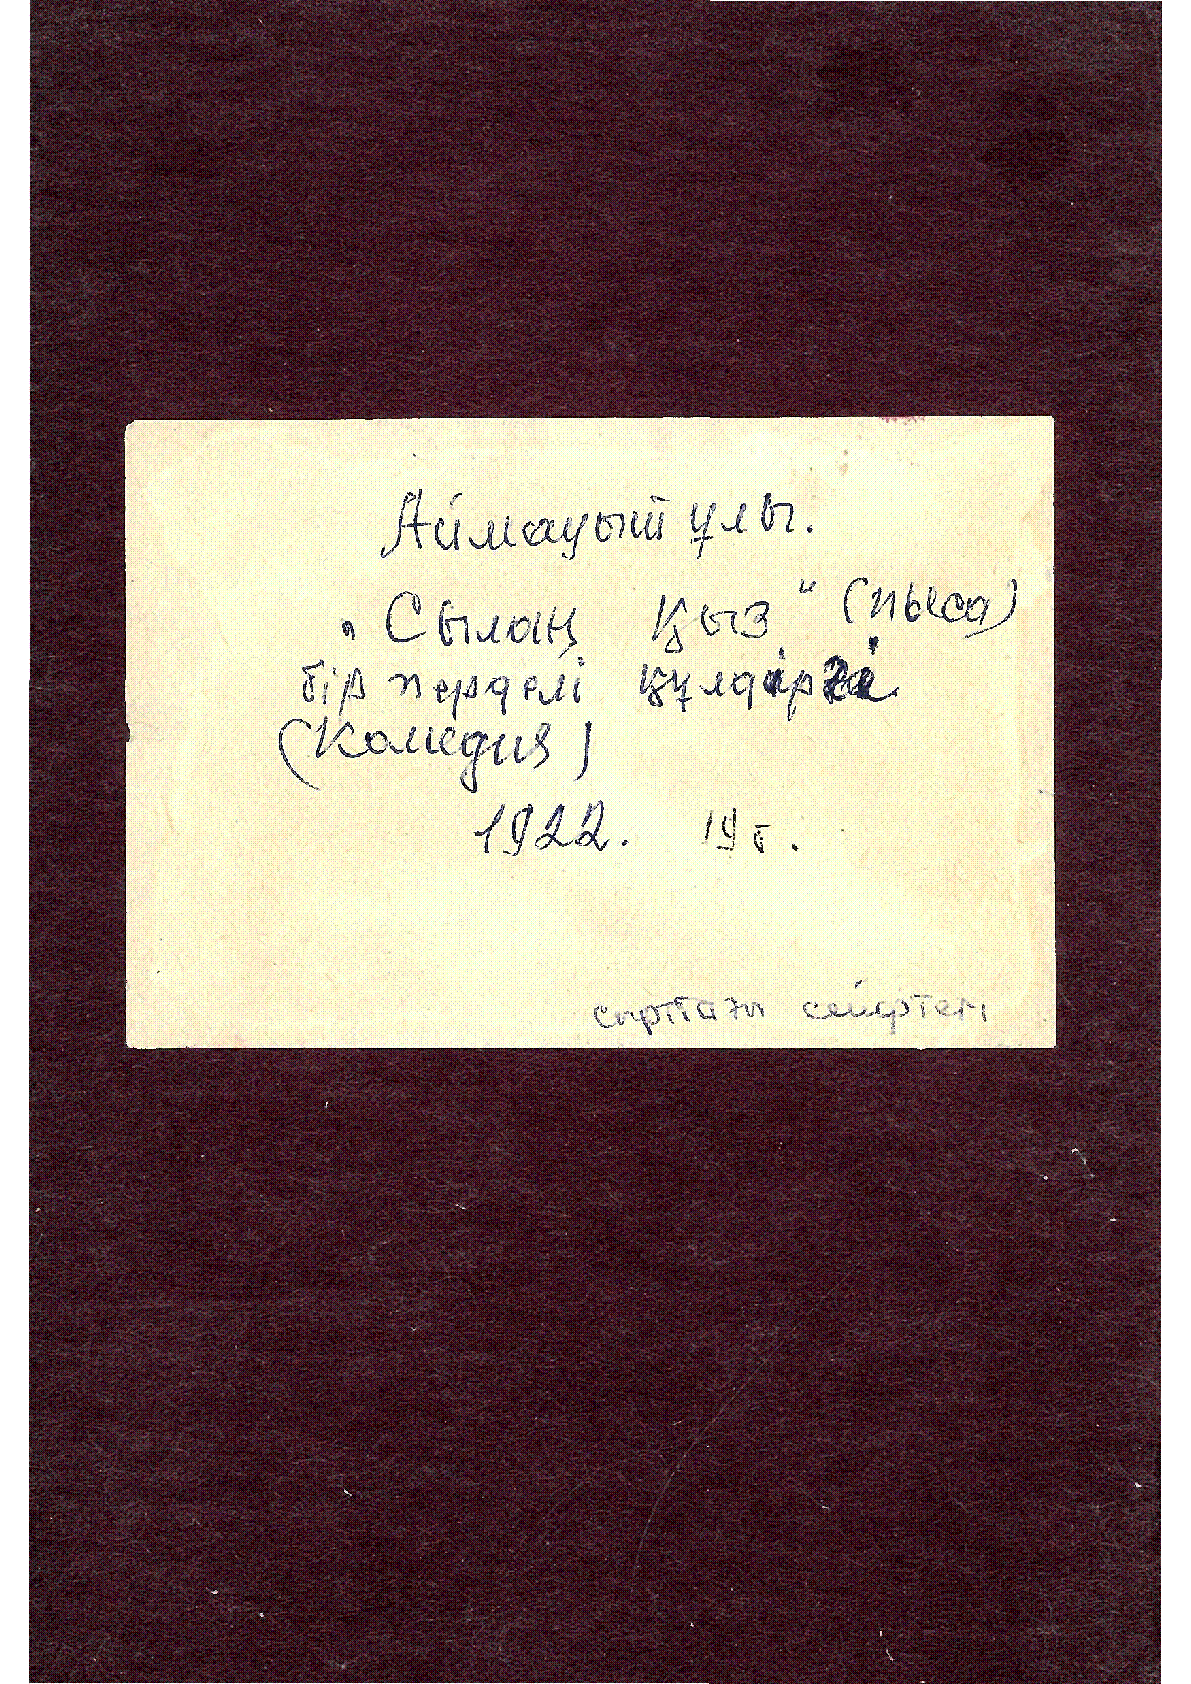 Аймауыт ұлы.
„Сылаң қыз“ (пьеса)
бір перделі күлдіргі
(комедия)
1922. 19 б.
сыртғы сейфтегі